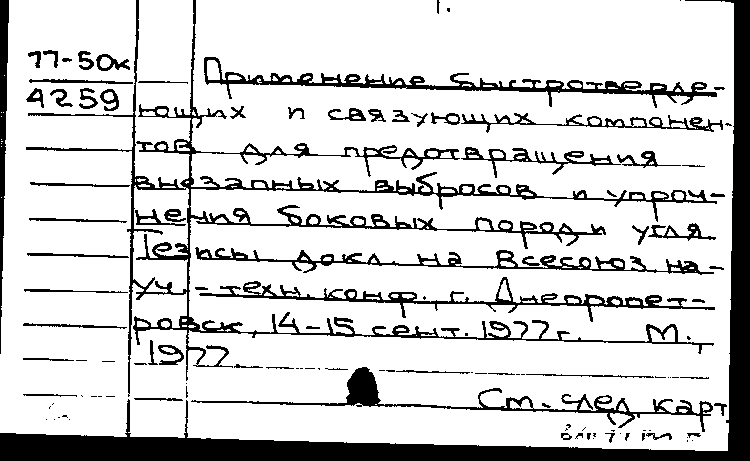 1.
77-50к
4259
Применение быстротверде-
ющих и связующих компонен-
тов для предотвращения
внезапных выбросов и упроч-
нения боковых пород и угля.
Тезисы докл. на Всесоюз. на-
уч.-техн. конф., г. Днепропет-
ровск, 14-15 сент. 1977г. М.,
1977.
См. след. карт.